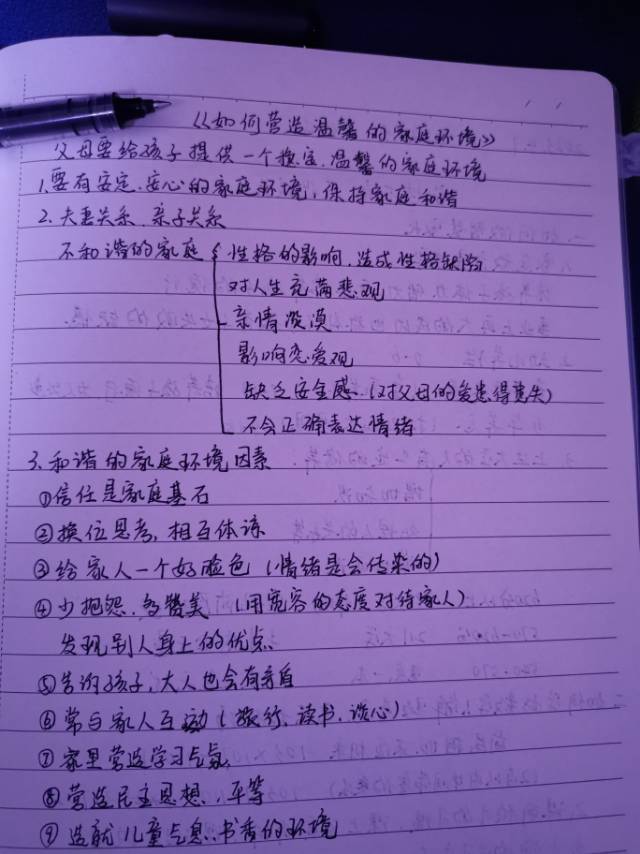 《如何营造温馨的家庭环境》
父母要给孩子提供一个稳定.温馨的家庭环境
1.要有安定.安心的家庭环境,保持家庭和谐
2.夫妻关系.亲子关系
不和谐的家庭 性格的影响.造成性格缺陷
对人生充满悲观
亲情淡漠
影响恋爱观
缺乏安全感.(对父母的爱患得患失)
不会正确表达情绪
3.和谐的家庭环境因素
①信任是家庭基石
②换位思考,相互体谅
③给家人一个好脸色(情绪是会传染的)
④少抱怨.多赞美(用宽容的态度对待家人)
发现别人身上的优点.
⑤告诉孩子,大人也会有
⑥常与家人互动(旅行.读书.谈心)
⑦家里营造学习气氛.
⑧营造民主思想.平等
⑨造就儿童气息.书香的环境